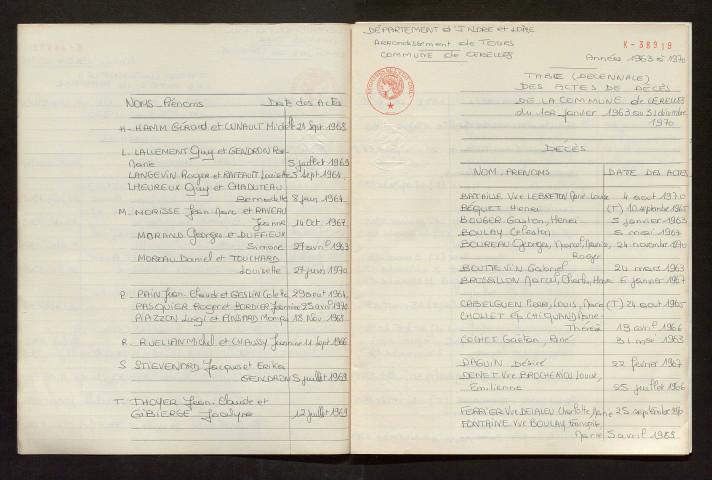 NOMS Prénoms Date des Actes
H. HAMM Gérard et CUNAULT Michelle 21 Sept 1968
L. LALLEMENT Guy et GENDRON
Marie 5 juillet 1969
LANGEVIN Roger et RAFFAULT 5 Sept 1964
LHEUREUX Guy et CHABUTEAU
Bernadette 8 juin 1964
M. MORISSE Jean Marc et RAVEAU
Jeanne 14 Oct 1967
MORAND Georges et DUFFIEUX
Simone 27 avril 1963
MOREAU Daniel et TOUCHARD
Louisette 27 juin 1970
P. PAIN Jean-Claude et GESLIN Colette 29 aout 1964
PASQUIER Roger et BORDIER Jeannine 25 avril 1970
PIAZZON Luigi et PINSARD Monique 18 Nov 1968
R. RUELLAN Michel et CHAUSSY Jeannine 11 Sept 1966
S STIEVENARD Jacques et Erika
GENDRON 5 juillet 1969
T. THOYER Jean-Claude et
GIBIERGE Jocelyne 12 juillet 1969
DÉPARTEMENT d'INDRE et LOIRE
Arrondissement de TOURS
COMMUNE de CERELLES
K-38919
Années 1963 à 1970
TABLE (DECENNALE)
DES ACTES DE DÉCÈS
DE LA COMMUNE de CERELLES
du 1er janvier 1963 au 31 décembre
1970
DECÈS
NOM. PRENOMS DATE DES ACTES
BATAILLE Vve LEBRETON Marie Louise 4 aout 1970
BEQUET Henri (T) 10 septembre 1965
BOUGER Gaston, Henri 5 janvier 1963
BOULAY Célestin 5 mai 1967
BOUREAU Georges, Marcel, Maurice, 24 novembre 1970
Roger
BOUTTEVIN Gabriel 24 mars 1963
BROSSILLON Marcel, Charles, Henri 6 janvier 1967
CABELGUEN Pierre, Louis, Marie (T) 24 aout 1965
CHOLLET Ep CHIQUAND Anne
Thérèse 19 avril 1966
COCHET Gaëtan, René 31 mai 1963
DAGUIN Désiré 22 février 1967
DENET Vve BROCHERIOU Louise,
Emilienne 25 juillet 1966
FERRIER Vve DELALEU Charlotte, Marie 25 septembre 1970
FONTAINE Vve BOULAY Françoise,
Marie 5 avril 1969